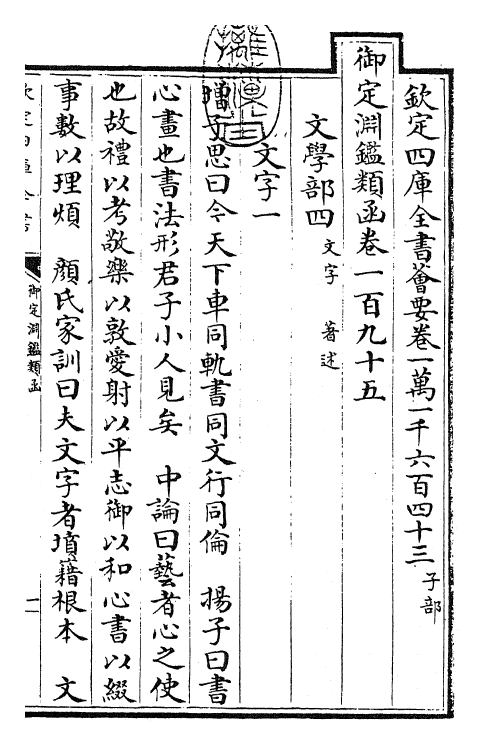 欽定四庫全書薈要卷一萬一千六百四十三 子部
御定淵鑑類函卷一百九十五
文學部四 文字 著述
文字一
增子思曰今天下車同軌書同文行同倫 揚子曰書
心畫也書法形君子小人見矣 中論曰藝者心之使
也故禮以考敬樂以敦愛射以平志御以和心書以綴
事數以理煩 顏氏家訓曰夫文字者墳籍根本 文
御定淵鑑類函
一